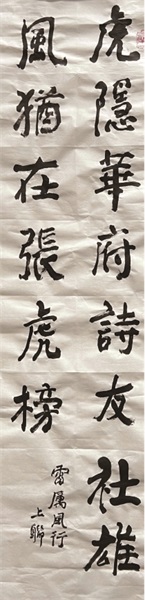 虎隱華府詩友社雄
風猶在張虎榜
雷厲風行
上聯